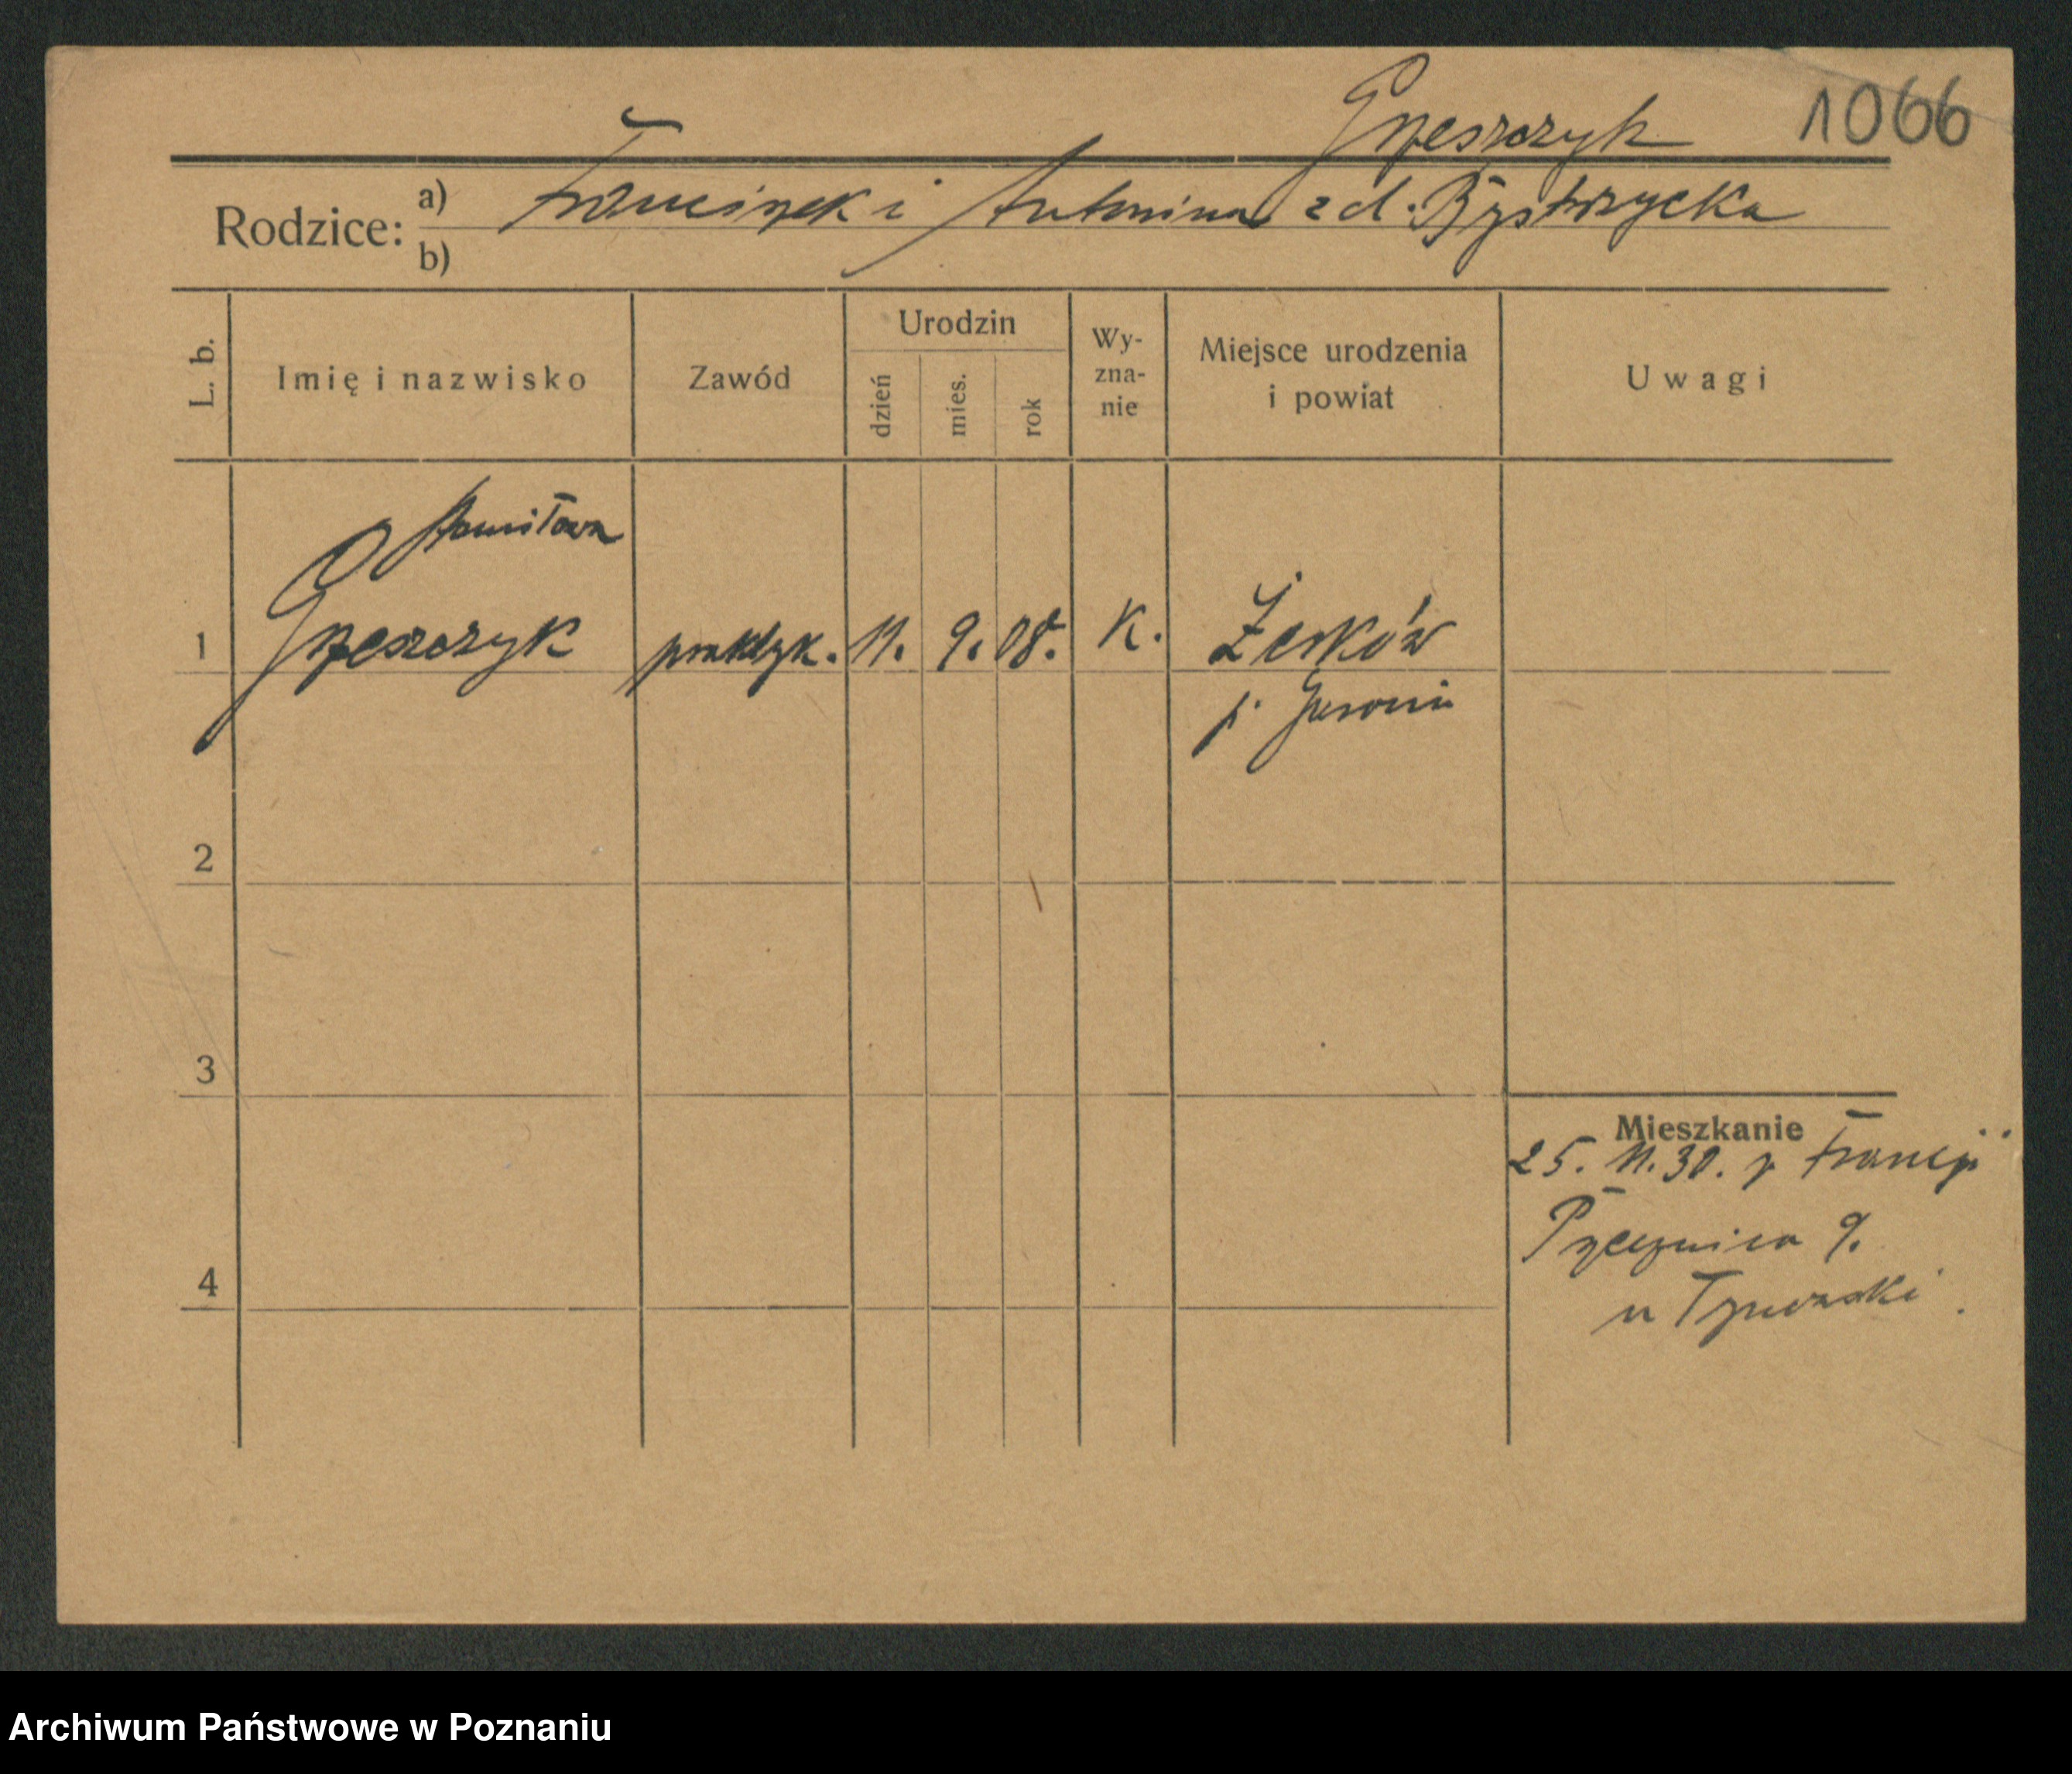 Grzeszczyk 1066
Rodzice: a) Franciszek i Antonina z d. Bystrzycka
b)
L. b.
Imię i nazwisko
Zawód
Urodzin
dzień
mies.
rok
Wy-
zna-
nie
Miejsce urodzenia
i powiat
Uwagi
Stanisława
1 Grzeszczyk praktyk. 11. 9. 08. K. Żerków
p.
2
3
4
Mieszkanie
25. 11. 30. z Francji
9.
u
Archiwum Państwowe w Poznaniu